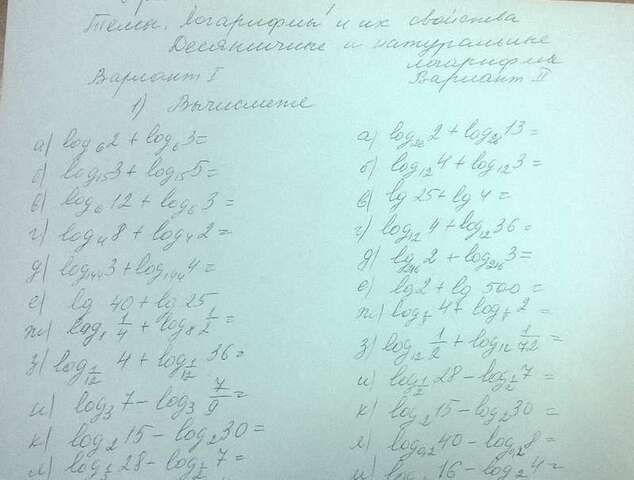 Тема: Логарифмы и их свойства
Десятичные и натуральные
логарифмы
Вариант I
Вариант II
1) Вычислите
а) log₆2 + log₆3 =
б) log₁₅3 + log₁₅5 =
в) log₆12 + log₆3 =
г) log₄8 + log₄2 =
д) log₁₄₄3 + log₁₄₄4 =
е) lg 40 + lg 25
ж) log₈ 1/4 + log₈ 1/2 =
з) log 1/12 4 + log 1/12 36 =
и) log₃7 − log₃ 7/9 =
к) log₂15 − log₂30 =
28 − log 7 =
а) log₂₆2 + log₂₆13 =
б) log₁₂4 + log₁₂3 =
в) lg 25 + lg 4 =
г) log₁₂4 + log₁₂36 =
д) log₂₁₆2 + log₂₁₆3 =
е) lg2 + lg 500 =
ж) 4 + 2 =
з) log₁₂ 1/2 + log₁₂ 1/72 =
и) log 1/2 28 − log 1/2 7 =
к) log₂15 − log₂30 =
л) log₀,₂40 − log₀,₂8 =
16 − log₂4 =